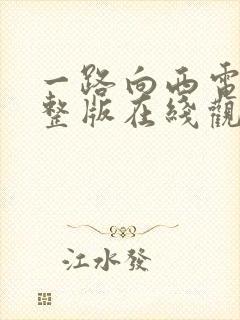 一路向西電
整版在綫觀
江水發